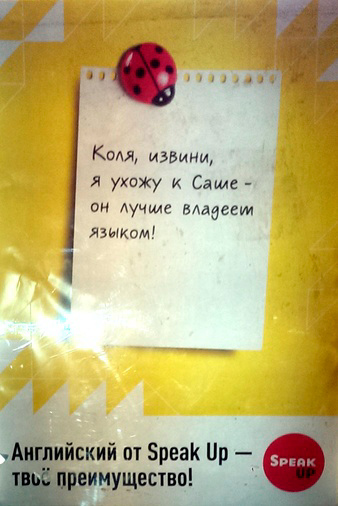 Коля, извини,
я ухожу к Саше -
он лучше владеет
языком!
Английский от Speak Up —
твоё преимущество!
SPEAK
UP